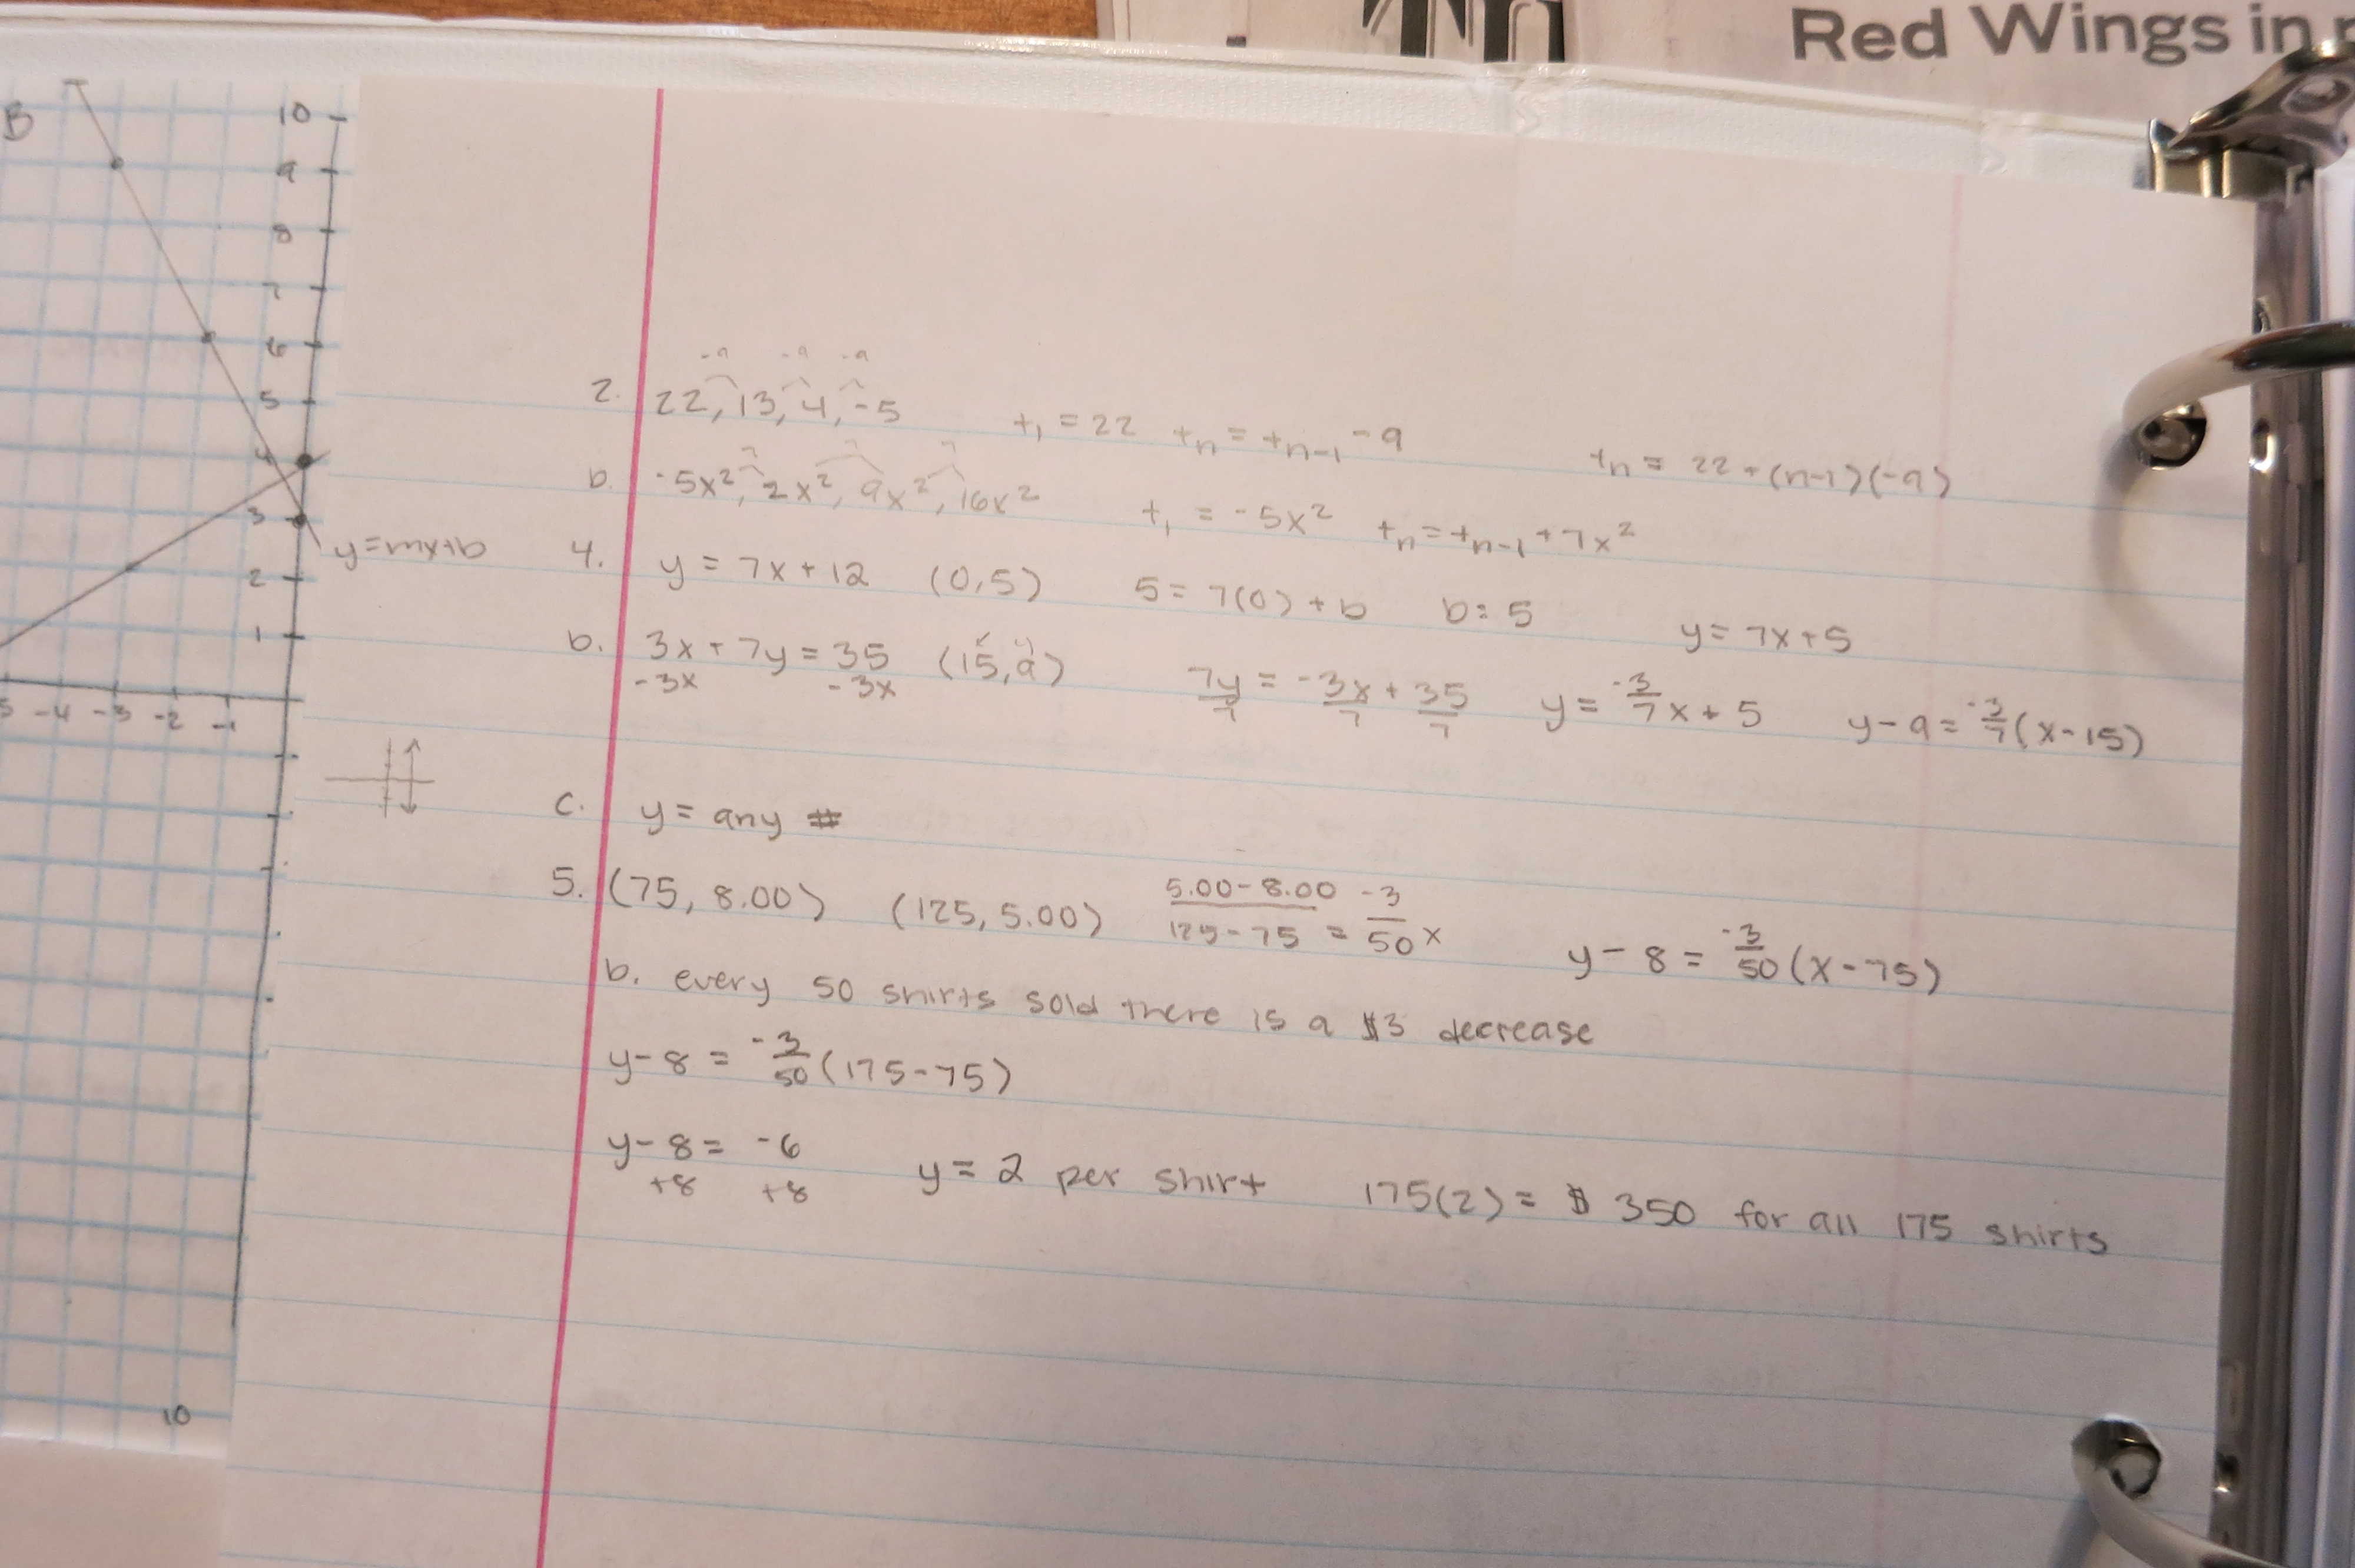 Red Wings in
B
10
9
8
7
6
5
4
3
2
1
y=mx+b
5 -4 -3 -2 -1
10
-9 -9 -9
2. 22, 13, 4, -5 t₁ = 22 tₙ = tₙ₋₁ - 9 tₙ = 22 + (n-1)(-9)
7 7 7
b. -5x², 2x², 9x², 16x² t₁ = -5x² tₙ = tₙ₋₁ + 7x²
4. y = 7x + 12 (0,5) 5 = 7(0) + b b = 5 y = 7x + 5
b. 3x + 7y = 35 (15,9) 7y/7 = -3x/7 + 35/7 y = -3/7x + 5 y - 9 = -3/7(x - 15)
-3x -3x
c. y = any #
5. (75, 8.00) (125, 5.00) 5.00-8.00/125-75 = -3/50 x y - 8 = -3/50(x - 75)
b. every 50 shirts sold there is a $3 decrease
y - 8 = -3/50(175 - 75)
y - 8 = -6 y = 2 per shirt 175(2) = $ 350 for all 175 shirts
+8 +8